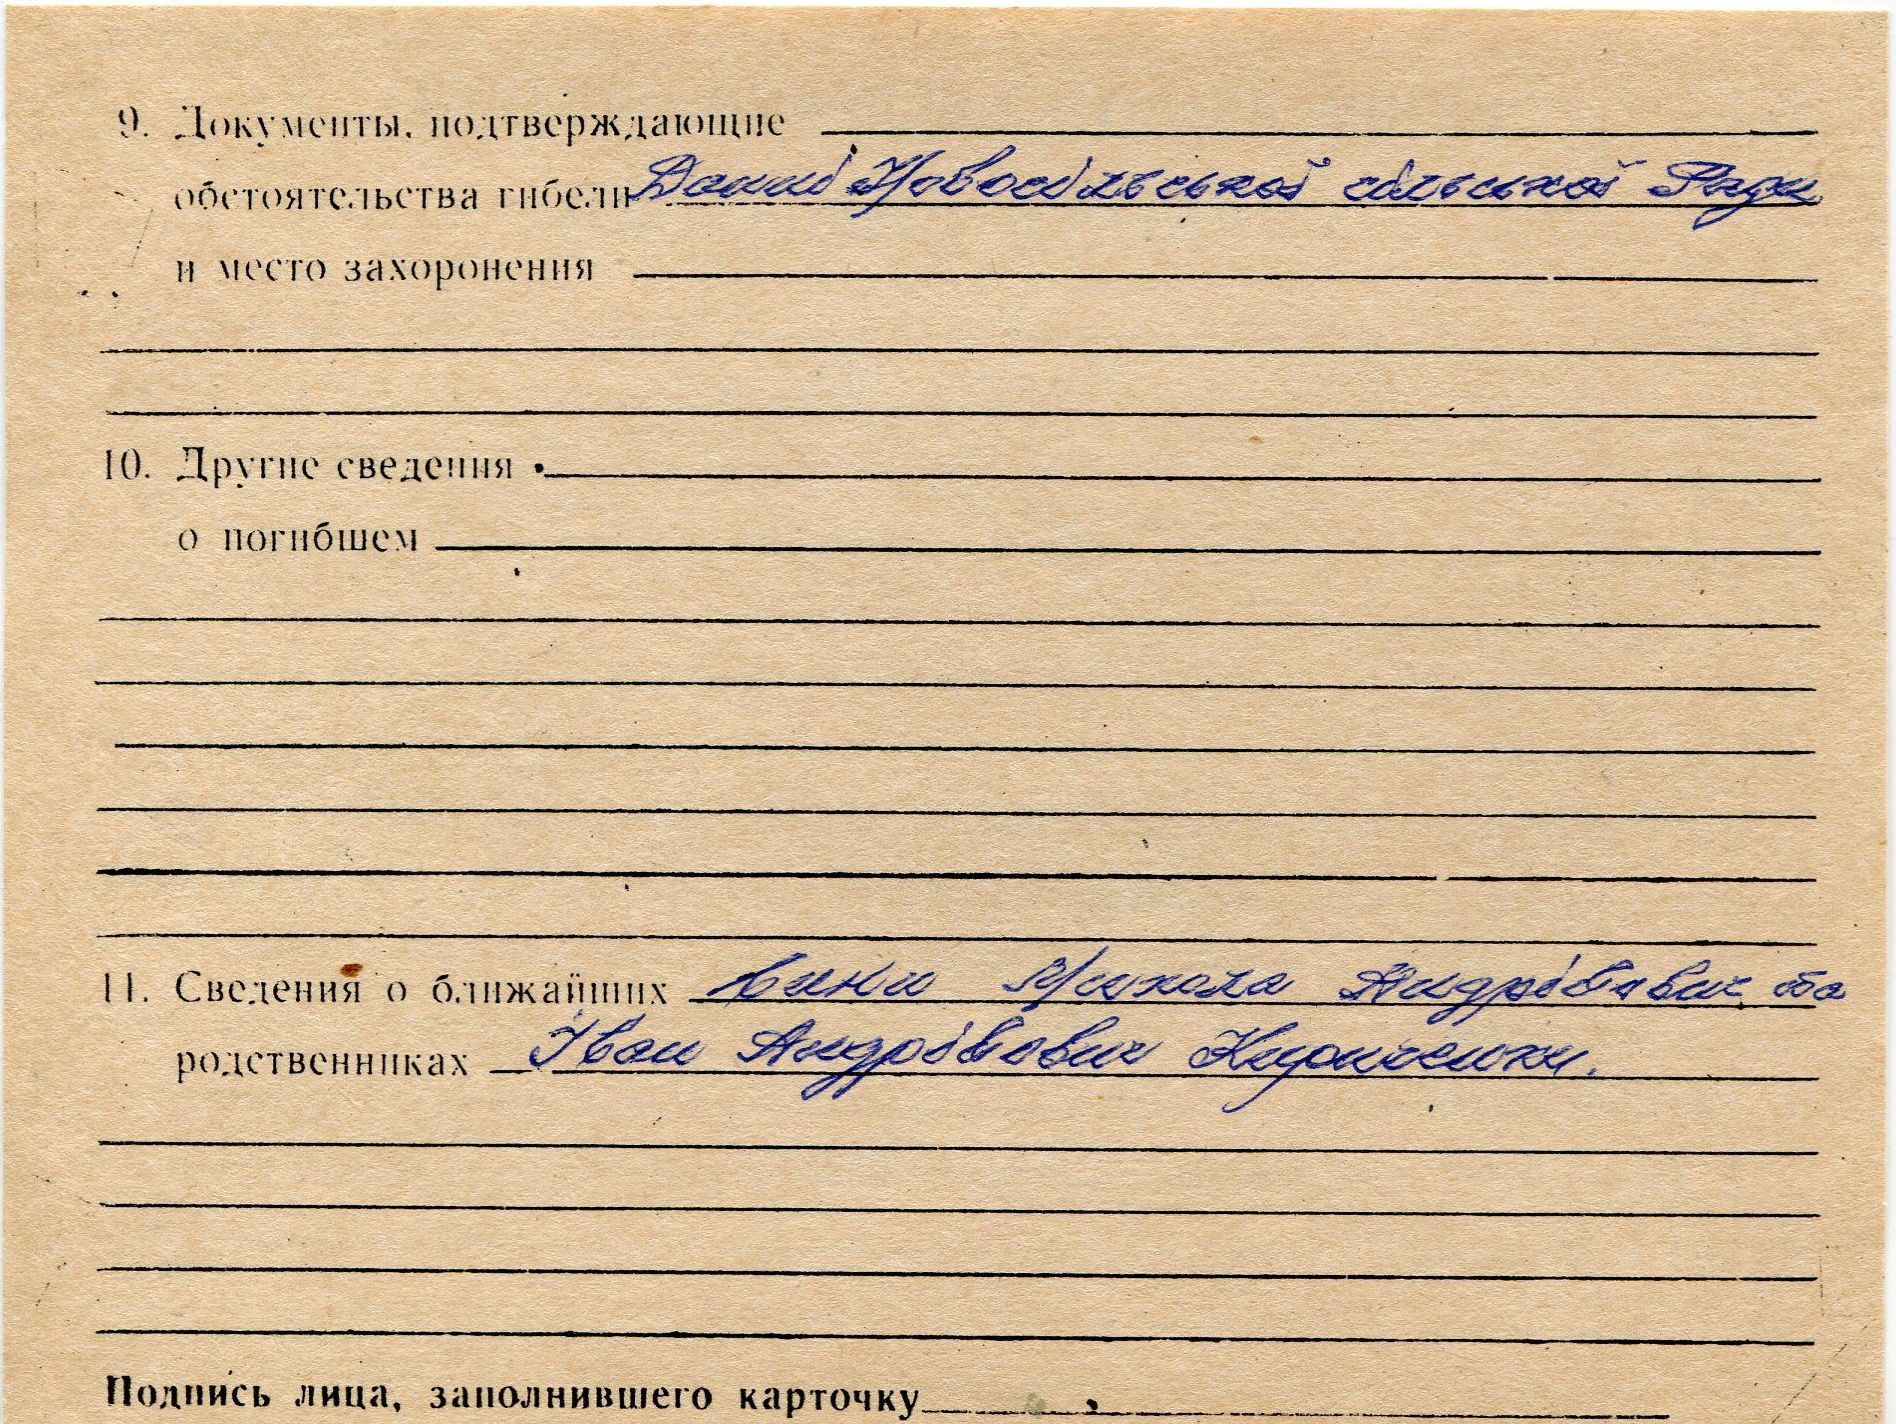 9. Документы, подтверждающие
обстоятельства гибели Данні Новосільської сільської Ради
и место захоронения
10. Другие сведения
о погибшем
11. Сведения о ближайших сини Микола Андрійович та
родственниках Іван Андрійович
Подпись лица, заполнившего карточку